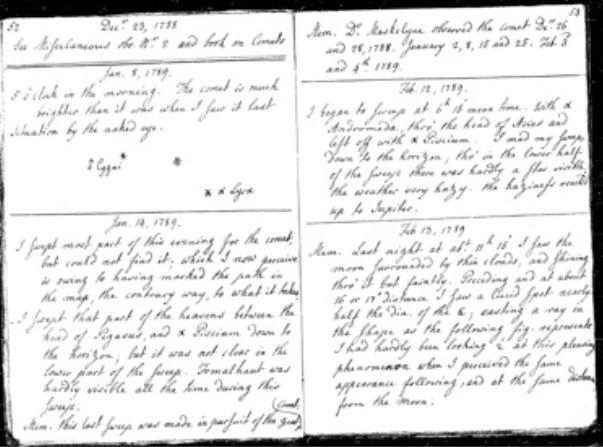 52
Decr. 23, 1788
See Miscellaneous obs. No. 2 and book on Comets
Jan. 8, 1789.
5 o'clock in the morning. The comet is much
brighter than it was when I saw it last
situation by the naked eye.
δ Cygni *
*
* α Lyræ
Jan. 14, 1789.
I swept most part of this evening for the comet,
but could not find it; which I now perceive
is owing to having marked the path in
the map, the contrary way, to what it takes.
I swept that part of the heavens between the
head of Pegasus, and α Piscium down to
the horizon; but it was not clear in the
lower part of the sweep. Fomalhaut was
hardly visible all the time during this
sweep.
Mem. this last sweep was made in pursuit of the great
Comet.
53
Mem. Dr. Maskelyne observed the comet Decr. 26
and 28, 1788. January 2, 8, 15 and 25. Feb. 3
and 4th. 1789.
Feb. 12, 1789.
I began to sweep at 6h 15' mean time. With α
Andromeda, thro' the head of Aries and
left off with α Piscium. I mad my sweeps
down to the horizon, tho' in the lower half
of the sweeps there was hardly a star visible
the weather very hazy. the haziness
up to Jupiter.
Feb 13, 1789
Mem. Last night at abt. 11h 15' I saw the
moon surrounded by thin clouds, and shining
thro' it but faintly. Preceding and at about
16 or distance I saw a lucid spot nearly
half the dia. of the ☾; casting a ray in
the shape as the following fig. represents
I had hardly been looking at this pleasing
phenomenon when I perceived the same
appearance following, and at the same distance
from the moon.